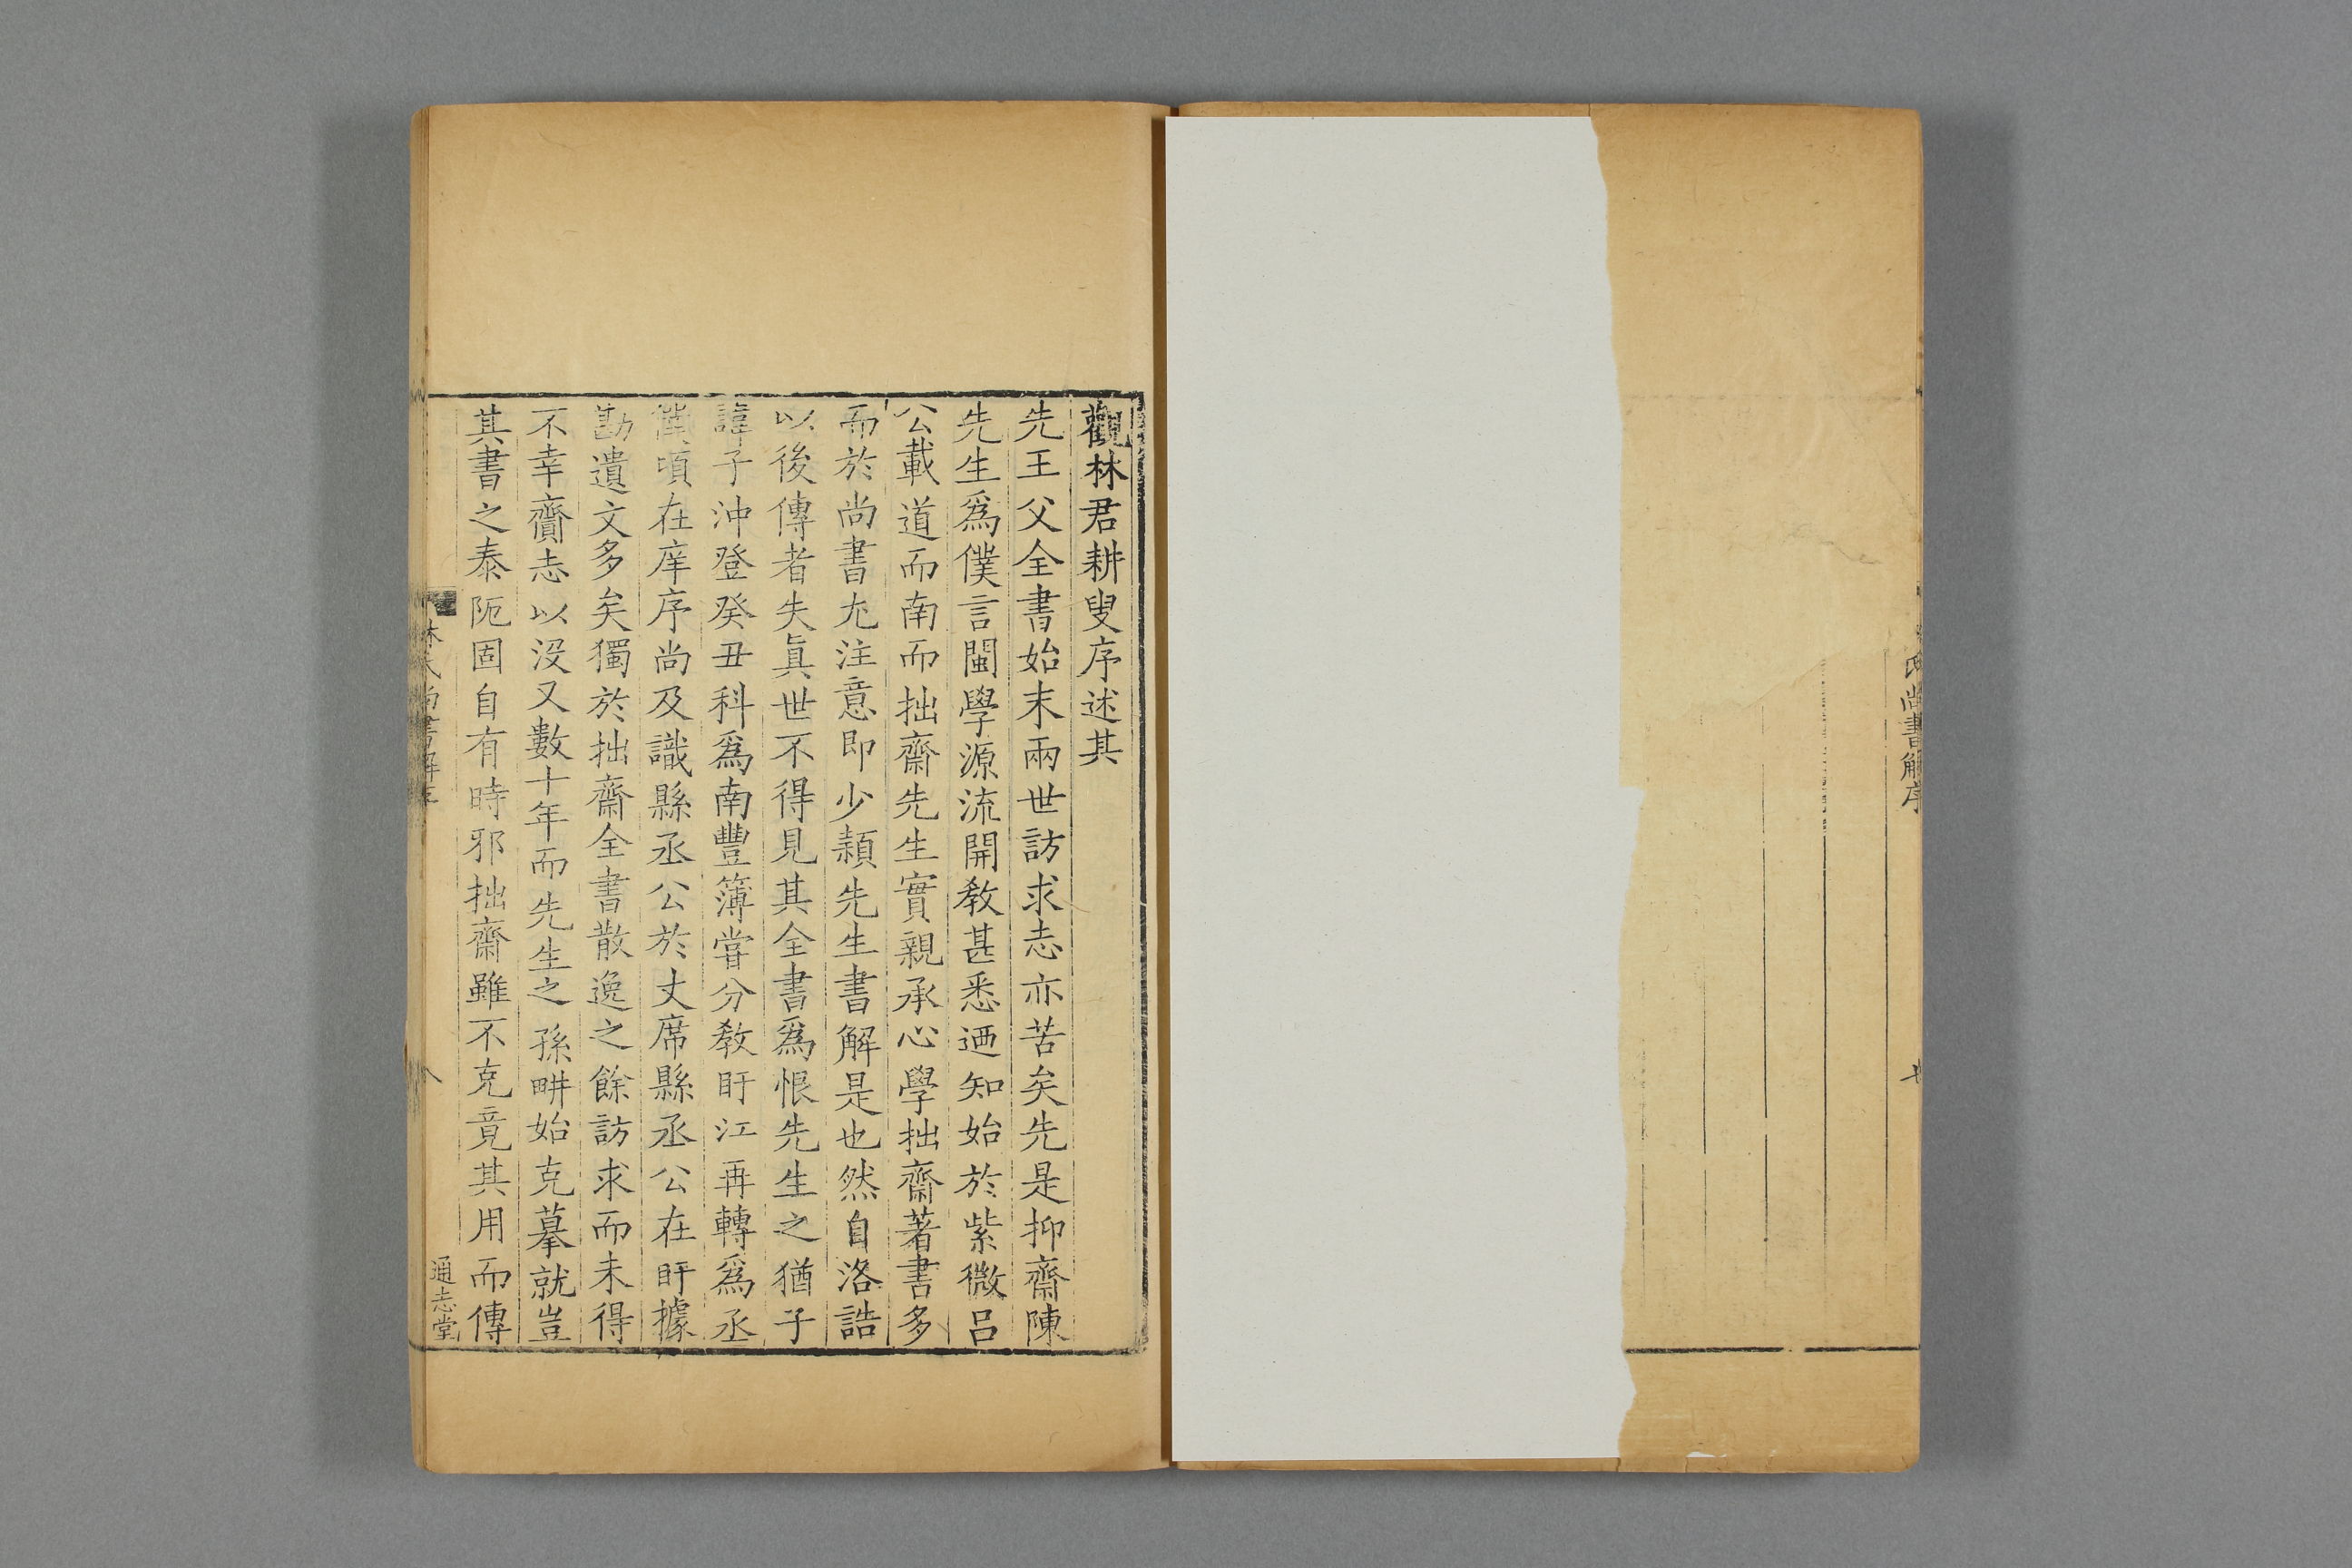 氏尚書解序
七
觀林君耕叟序述其
先王父全書始末兩世訪求志亦苦矣先是抑齋陳
先生爲僕言閩學源流開教甚悉迺知始於紫微呂
公載道而南而拙齋先生實親承心學拙齋著書多
而於尚書尤注意即少穎先生書解是也然自洛誥
以後傳者失眞世不得見其全書爲恨先生之猶子
諱子沖登癸丑科爲南豐簿嘗分教盱江再轉爲丞
僕頃在庠序尚及識縣丞公於丈席縣丞公在盱據
勘遺文多矣獨於拙齋全書散逸之餘訪求而未得
不幸齎志以没又數十年而先生之孫畊始克摹就豈
其書之泰阨固自有時邪拙齋雖不克竟其用而傳
林氏尚書解序
八
通志堂